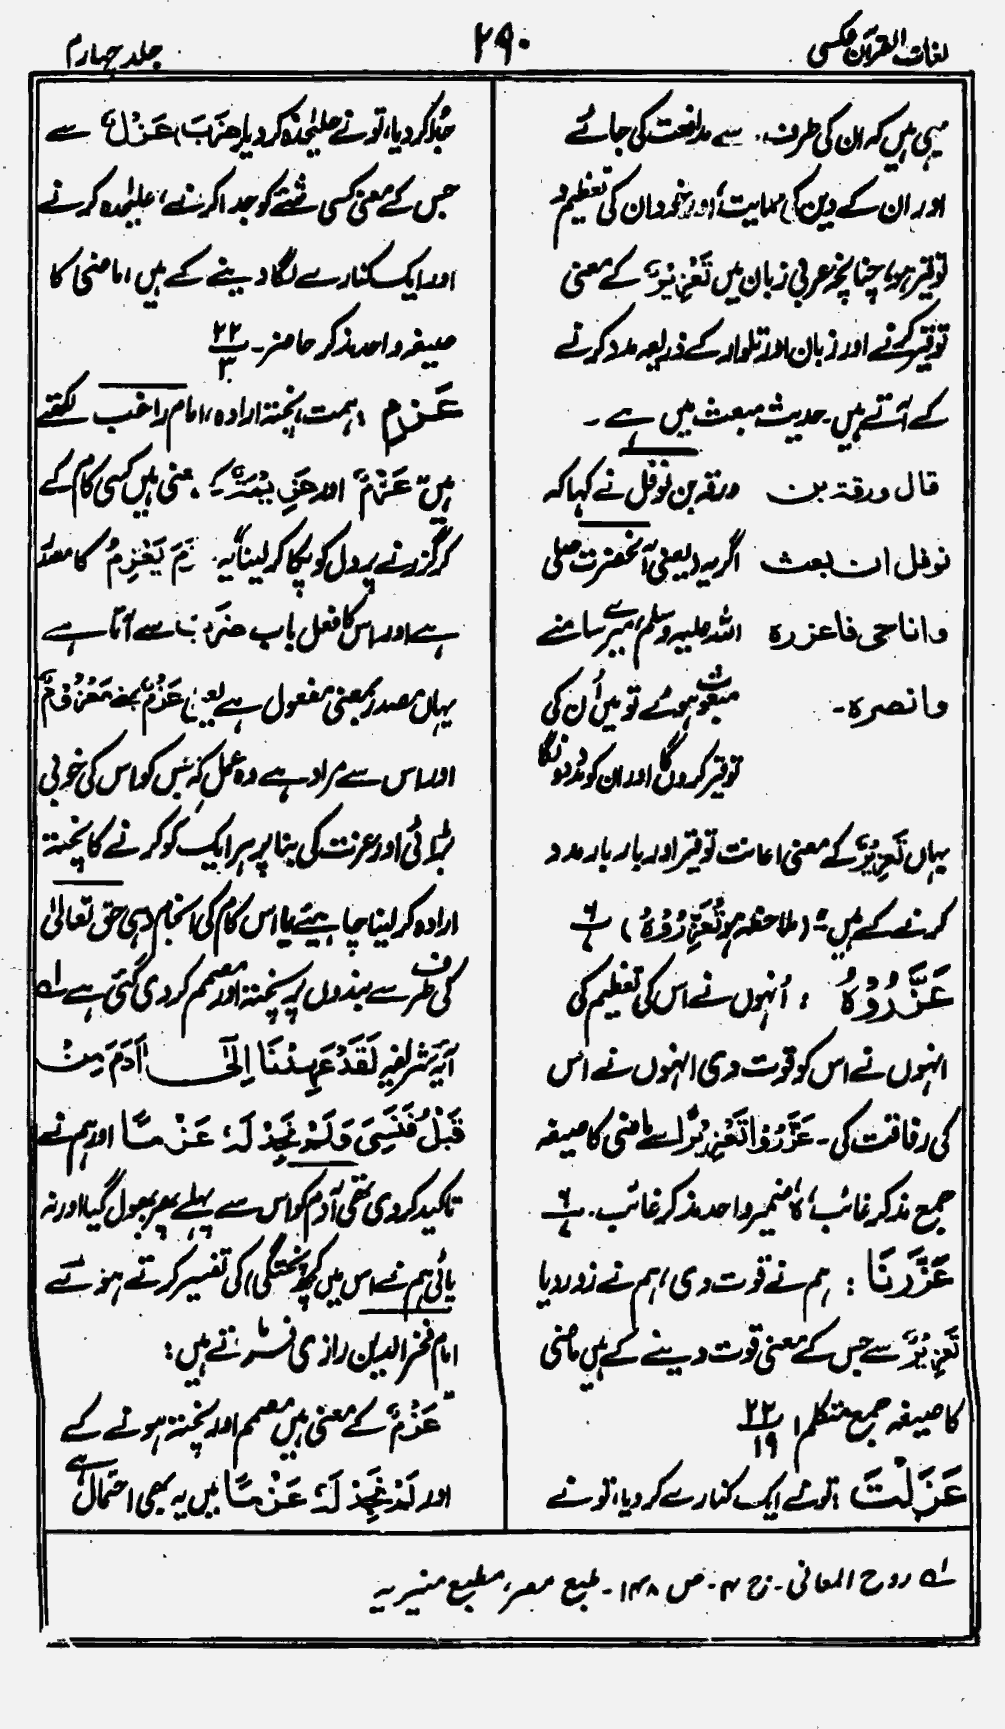 لغات القرآن عکسی
۲۹۰
جلد چہارم
یہی ہیں کہ ان کی طرف سے مدافعت کی جائے
اور ان کے دین کی حمایت، اور خود ان کی تعظیم و
توقیر ہو، چنانچہ عربی زبان میں تَعْزِیْرٌ کے معنی
توقیر کرنے اور زبان اور تلوار کے ذریعہ مدد کرنے
کے آتے ہیں۔ حدیث مبعث میں ہے۔
قال ورقة بن
نوفل ان بعث
وانا حی فاعزرہ
وانصرہ۔
ورقہ بن نوفل نے کہا کہ
اگر یہ (یعنی آنحضرت صلی
اللہ علیہ وسلم) میرے سامنے
مبعوث ہوئے تو میں اُن کی
توقیر کروں گا اور ان کو مدد دونگا
یہاں تَعْزِیْرٌ کے معنی اعانت توقیر اور بار بار مدد
کرنے کے ہیں۔ (ملاحظہ ہو تُعَزِّرُوْہُ) ۶/۹
عَزَّرُوْہُ : اُنہوں نے اس کی تعظیم کی
انہوں نے اس کو قوت دی انہوں نے اس
کی رفاقت کی۔ عَزَّرُوْا تَعْزِیْرٌ سے ماضی کا صیغہ
جمع مذکر غائب، ہٗ ضمیر واحد مذکر غائب۔ ۶/۹
عَزَّزْنَا : ہم نے قوت دی، ہم نے زور دیا
تَعْزِیْزٌ سے جس کے معنی قوت دینے کے ہیں ماضی
کا صیغہ جمع متکلم ۲۲/۱۹
عَزَلْتَ : تونے ایک کنارے کر دیا، تو نے
جُدا کر دیا، تو نے علیٰحدہ کر دیا (ضَرَبَ) عَزْلٌ سے
جس کے معنی کسی شئے کو جدا کرنے، علیٰحدہ کرنے
اور ایک کنارے لگا دینے کے ہیں، ماضی کا
صیغہ واحد مذکر حاضر۔ ۲۲/۳
عَزْم : ہمت، پختہ ارادہ، امام راغب لکھتے
ہیں عَزْمٌ اور عَزِیْمَةٌ کے معنی ہیں کسی کام کے
کر گزرنے پر دل کو پکا کر لینا یہ عَزَمَ یَعْزِمُ کا مصدر
ہے اور اس کا فعل باب ضَرَبَ سے آتا ہے
یہاں مصدر بمعنی مفعول ہے یعنی عَزْمٌ بمعنی مَعْزُوْمٌ
اور اس سے مراد ہے وہ عمل کہ جس کو اس کی خوبی
بڑائی اور عزت کی بنا پر ہر ایک کو کرنے کا پختہ
ارادہ کر لینا چاہیئے یا اس کام کی انجام دہی حق تعالیٰ
کی طرف سے بندوں پر پختہ اور مصمم کر دی گئی ہے ؎۱
آیۂ شریفہ لَقَدْ عَهِدْنَا اِلٰۤى اٰدَمَ مِنْ
قَبْلُ فَنَسِیَ وَلَمْ نَجِدْ لَهٗ عَزْمًا اور ہم نے
تاکید کر دی تھی آدم کو اس سے پہلے پھر بھول گیا اور نہ
پائی ہم نے اس میں کچھ پختگی) کی تفسیر کرتے ہوئے
امام فخر الدین رازی فرماتے ہیں:
عَزْمٌ کے معنی ہیں مصمم اور پختہ ہونے کے
اور لَمْ نَجِدْ لَهٗ عَزْمًا میں یہ بھی احتمال ہے
؎۱ روح المعانی۔ ج ۴۔ ص ۱۴۸۔ طبع مصر، مطبع منیریہ